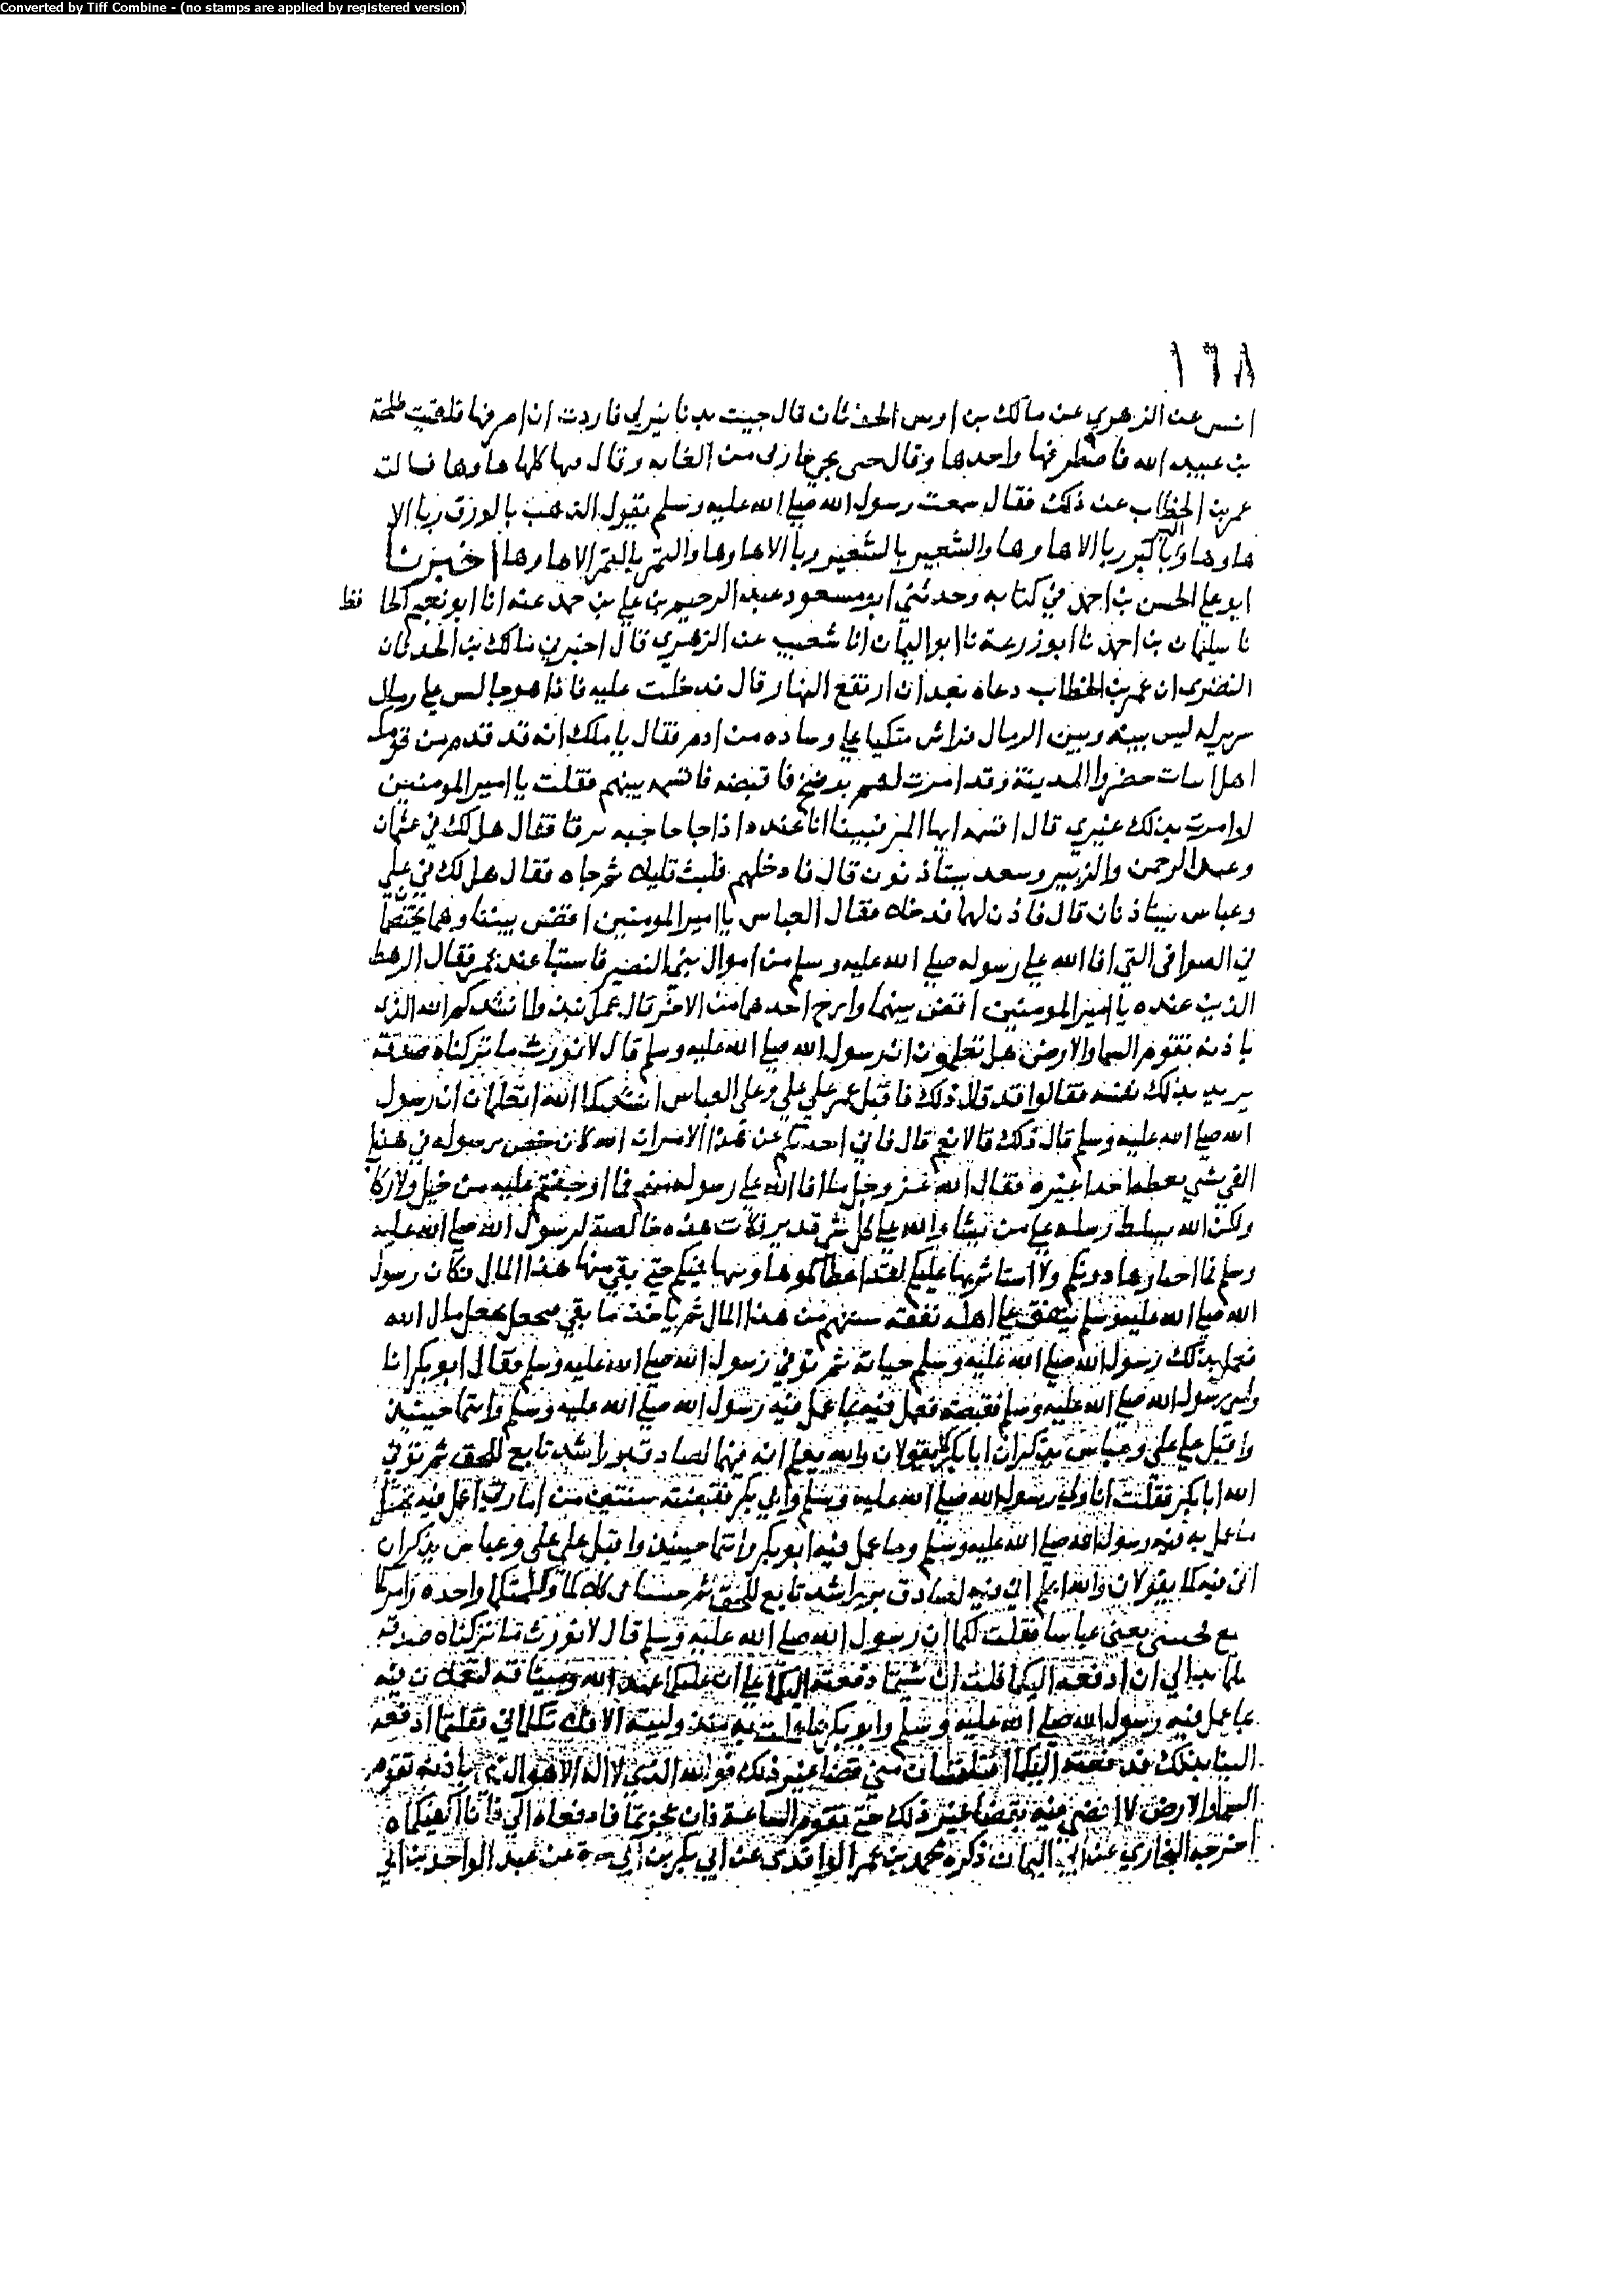 Converted by Tiff Combine - (no stamps are applied by registered version)
١٦٨
انس عن الزهري عن مالك بن اوس الحدثان قال جيت بدنانير لي فاردت ان اصرفها فلقيت طلحة
بن عبيد الله فاصطرفها واحدها وقال حتى يجي خازني من الغابه وقال مها كلها هاوها فسالت
عمر بن الخطاب عن ذلك فقال سمعت رسول الله صلى الله عليه وسلم يقول الذهب بالورق ربا الا
هاوها والبر بالبر ربا الا هاوها والشعير بالشعير ربا الا هاوها والتمر بالتمر الا هاوها اخبرنا
ابو علي الحسن بن احمد في كتابه وحدثني ابو مسعود عبد الرحيم بن علي بن حمد عنه انا ابو نعيم الحا فظ
نا سليمان بن احمد نا ابو زرعة نا ابو اليمان انا شعيب عن الزهري قال اخبرني مالك بن الحدثان
النضري ان عمر بن الخطاب دعاه بعد ان ارتفع النهار قال فدخلت عليه فاذا هو جالس على رمال
سرير له ليس بينه وبين الرمال فراش متكيا على وساده من ادم فقال يا ملك انه قد قدم من قومك
اهل ابيات حضروا المدينة وقد امرت لهم برضخ فاقبضه فاقسمه بينهم فقلت يا امير المومنين
لو امرت بذلك غيري قال اقسمه ايها المر فبينا انا عنده اذ جا حاجبه يرفا فقال هل لك في عثمان
وعبد الرحمن والزبير وسعد يستاذنون قال فادخلهم فلبث قليلا ثم جاه فقال هل لك في علي
وعباس يستاذنان قال فاذن لهما فدخلا فقال العباس يا امير المومنين اقض بيننا وهما يختصما
ن
في الصوافي التي افا الله على رسوله صلى الله عليه وسلم من اموال بني النضير فاستبا عند عمر فقال الرهط
الذين عنده يا امير المومنين اقض بينهما وارح احدهما من الاخر قال عمر انشدكم الله الذي
باذنه تقوم السما والارض هل تعلمون ان رسول الله صلى الله عليه وسلم قال لا نورث ما تركناه صدقة
يريد بذلك نفسه فقالوا قد قال ذلك فاقبل عمر على علي وعلى العباس انشدكما الله اتعلمان ان رسول
الله صلى الله عليه وسلم قال ذلك قالا نعم قال فاني احدثكم عن هذا الامر ان الله كان خص رسوله في هذا
الفي بشي لم يعطه احدا غيره فقال الله عز وجل ما افا الله على رسوله منهم فما اوجفتم عليه من خيل ولا ركاب
ولكن الله يسلط رسله على من يشاء والله على كل شي قدير فكانت هذه خالصة لرسول الله صلى الله عليه
وسلم فما احتازها دونكم ولا استاثر بها عليكم لقد اعطاكموها وبثها فيكم حتى بقي منها هذا المال فكان رسول
الله صلى الله عليه وسلم ينفق على اهله نفقة سنتهم من هذا المال ثم ياخذ ما بقي فيجعل مجعل مال الله
فعمل بذلك رسول الله صلى الله عليه وسلم حياته ثم توفي رسول الله صلى الله عليه وسلم فقال ابو بكر انا
ولي رسول الله صلى الله عليه وسلم فقبضه فعمل فيه بما عمل فيه رسول الله صلى الله عليه وسلم وانتما حينئذ
واقبل على علي وعباس تذكران ابا بكر كما تقولان والله يعلم انه فيها لصادق بر راشد تابع للحق ثم توفي
الله ابا بكر فقلت انا ولي رسول الله صلى الله عليه وسلم وابي بكر فقبضته سنتين من امارتي اعمل فيه بمثل
ما عمل به فيه رسول الله صلى الله عليه وسلم وما عمل فيه ابو بكر وانتما حينئذ واقبل على علي وعباس تذكران
اني فيه كما تقولان والله يعلم اني فيه لصادق بر راشد تابع للحق ثم جئتماني كلاكما وكلمتكما واحده وامركما
جميع فجئتني يعني عباسا فقلت لكما ان رسول الله صلى الله عليه وسلم قال لا نورث ما تركناه صدقة
فلما بدا لي ان ادفعه اليكما قلت ان شئتما دفعته اليكما على ان عليكما عهد الله وميثاقه لتعملان فيه
بما عمل فيه رسول الله صلى الله عليه وسلم وابو بكر وما عملت به منذ وليته والا فلا تكلماني فقلتما ادفعه
الينا بذلك فدفعته اليكما افتلتمسان مني قضا غير ذلك فوالله الذي لا اله الا هو الذي باذنه تقوم
السما والارض لا اقضي فيه بقضا غير ذلك حتى تقوم الساعة فان عجزتما فادفعاه الي فانا اكفيكماه
اخرجه البخاري عن ابي اليمان ذكره محمد بن عمر الواقدي عن ابي بكر بن ابي سبرة عن عبد الواحد بن ابي